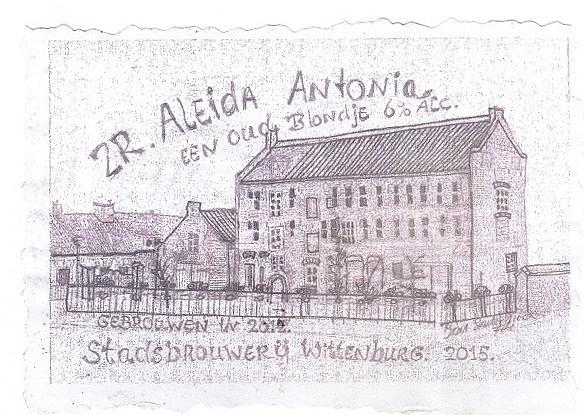 ZR. ALEIDA ANTONIA
EEN OUD BLONDJE 6% ALC.
GEBROUWEN IN 2012.
Stadsbrouwerij Wittenburg. 2015.